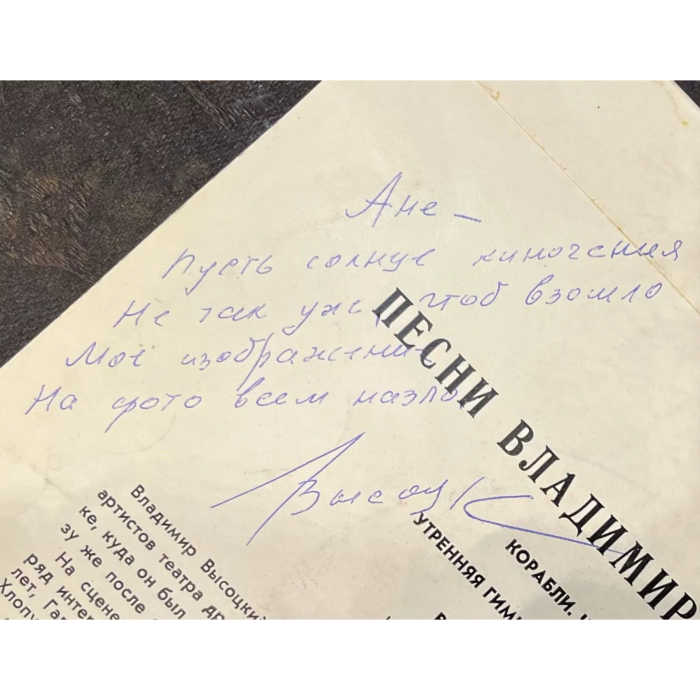 Ане –
Пусть солнце киногения
Не так уж, чтоб взошло
Моё изображение
На фото всем назло
Высоцк
ПЕСНИ ВЛАДИМИР
КОРАБЛИ.
УТРЕННЯЯ ГИМ
Владимир Высоцкий
артистов театра др
ке, куда он был
зу же после
На сцене
ряд интер
лет, Га
Хлопу